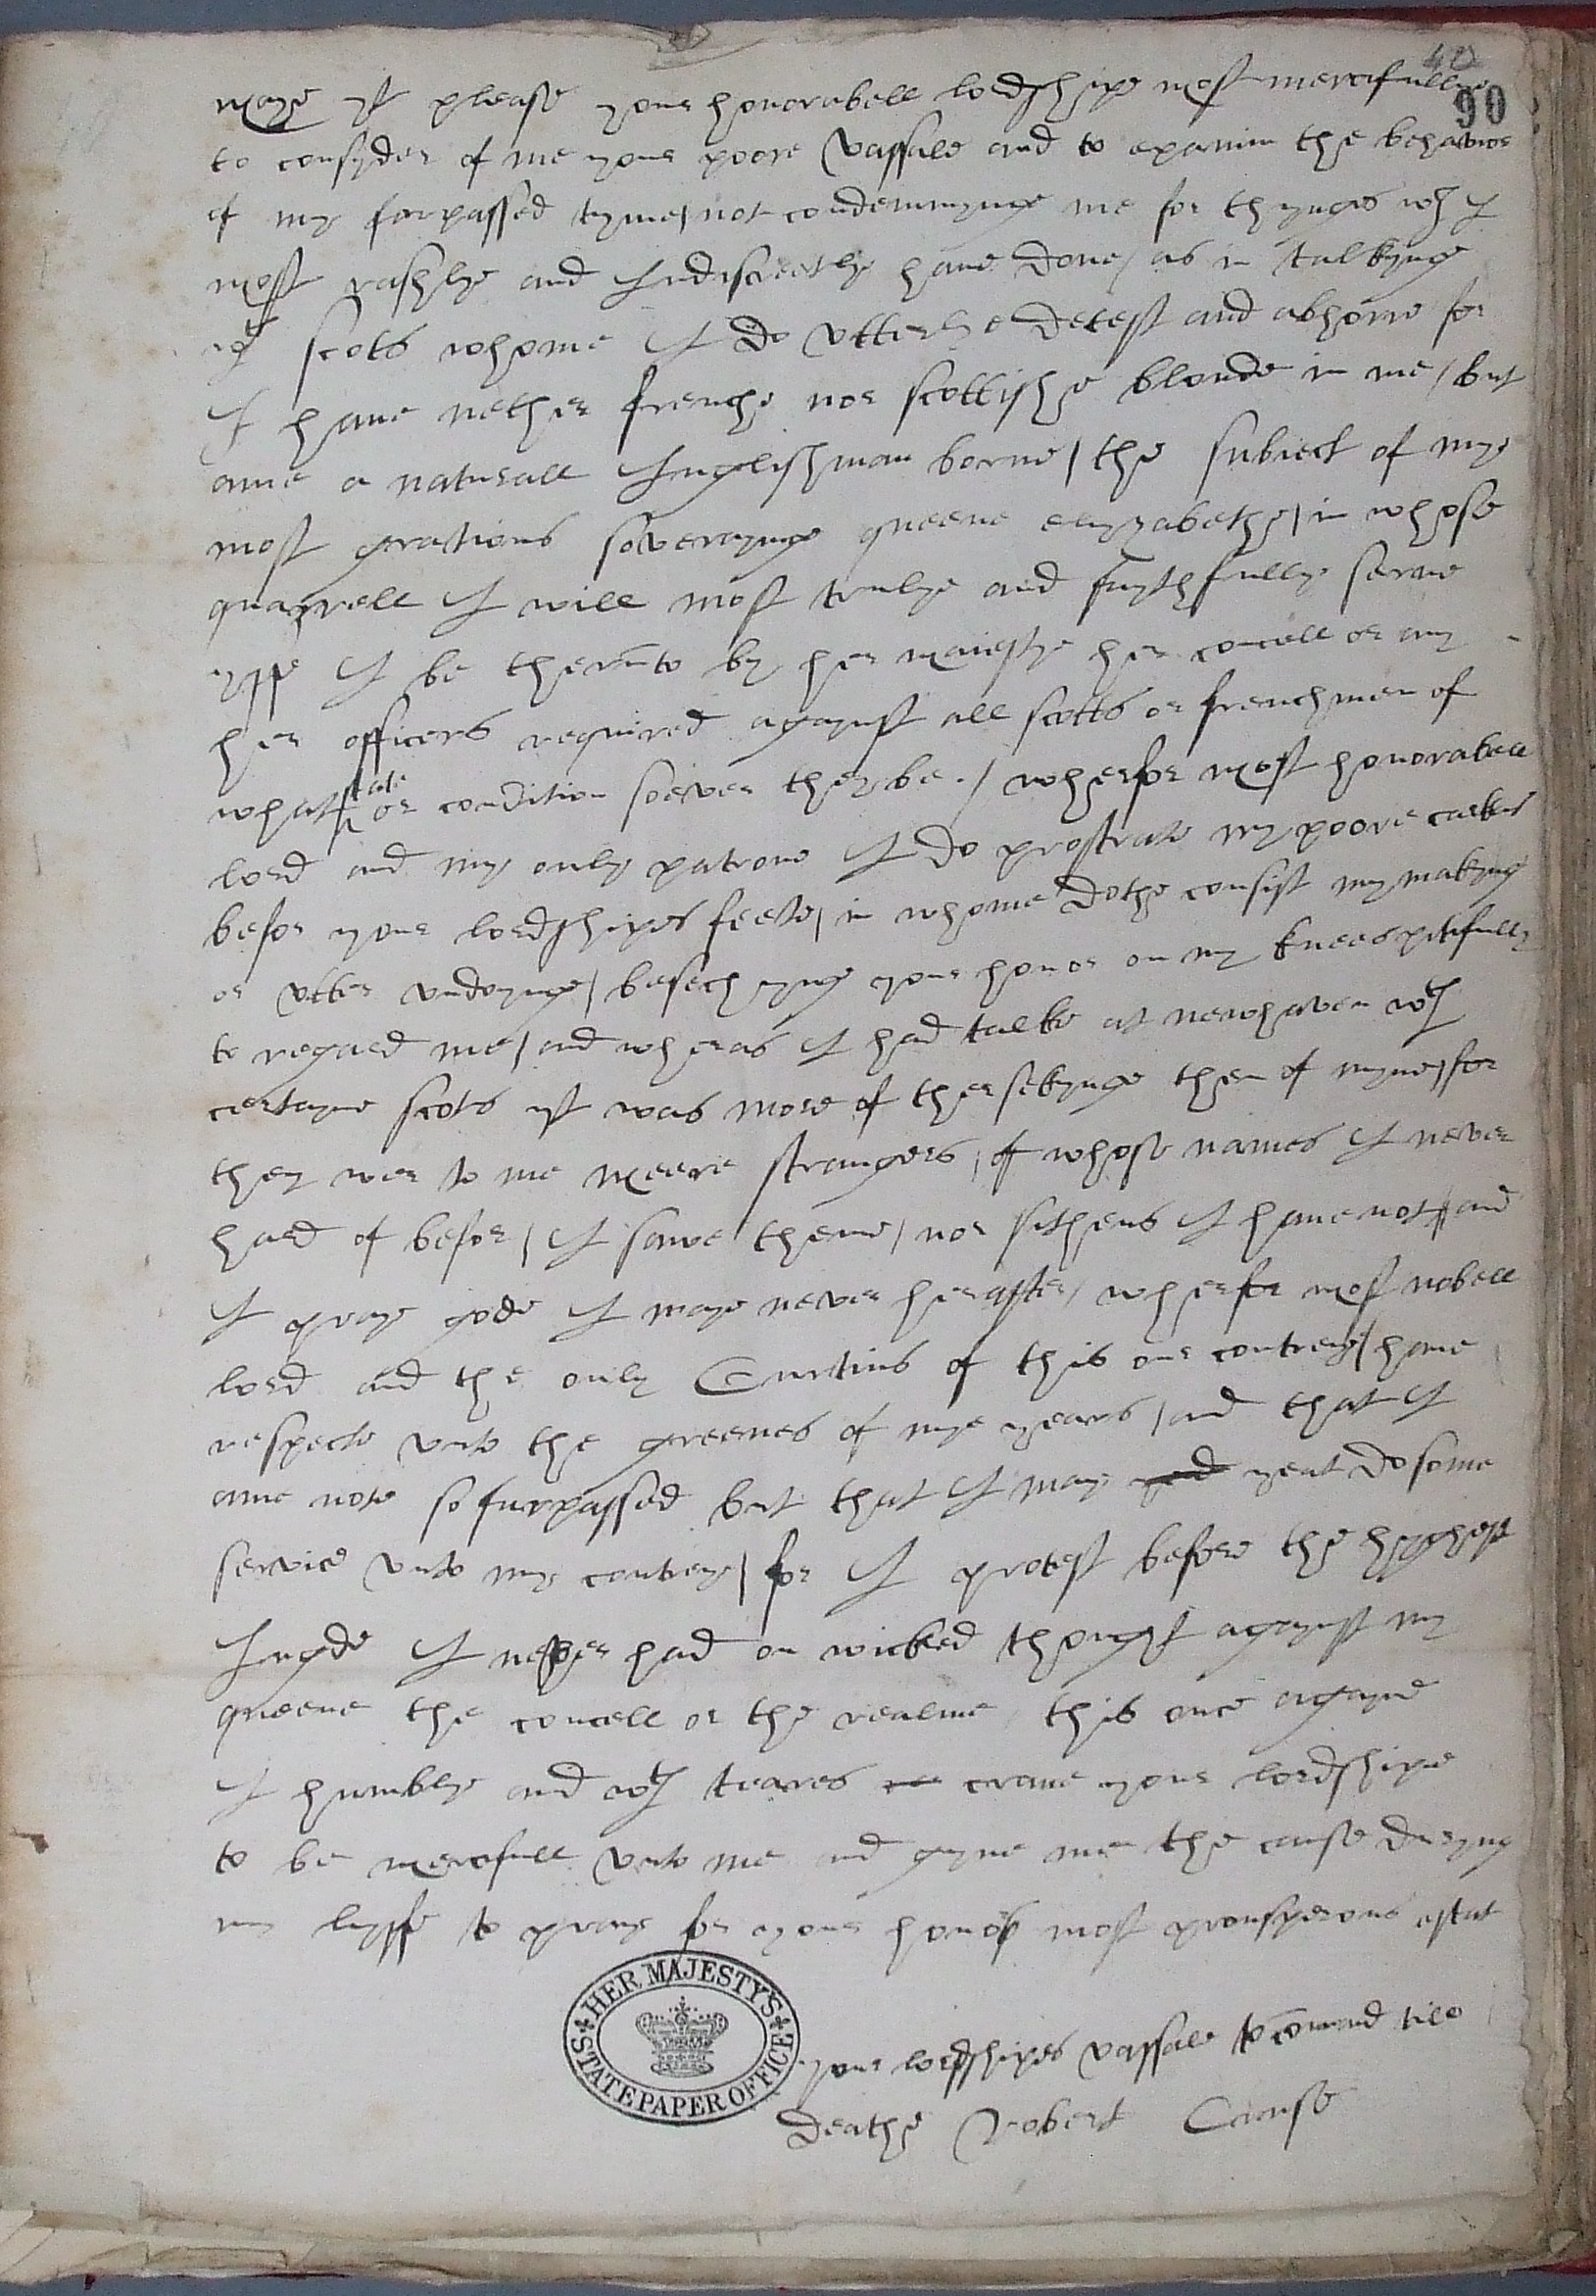 90
maye yt please your honorabell lordshipe most mercifullye
to consyder of me your poore vassale and to examin the behavior
of my forpassed tyme / not condemnynge me for thynges wch I
most rashlye and Indiscreetlye have done / as in talkynge
wt scots whome I do vtterlye detest and abhorre for
I have nether frenche nor scottishe bloude in me / but
ame a naturall Inglishman borne / the subiect of mye
most gratious soveraynge queene elyzabethe / in whose
quarrell I will most trulye and faythfullye serve
yff I be thervnto by her maiestye her concell or any
her officers required agaynst all scotts or frenchmen of
what state or condition soever they be ./ wherfor most honorabell
lord and my only patrone I do prostrate my poore carkas
befor your lordshipes feete / in whome dothe consist my makynge
or vtter vndoynge / besechynge your honor on my knees pitifully
to regard me / and wheras I had talke at newhaven wt
certayne scots yt was more of ther sekynge then of myne / for
they wer to me meere strangers / of whose names I never
hard of befor / I sawe theme / nor sithens I have not / and
I praye gode I maye never herafter / wherfor most nobell
lord and the only Curtius of this our contreye / have
respecte vnto the greenes of mye years / and that I
ame note so furpassed but that I maye yeat do some
service vnto my contreye / for I protest before the hyghest
Iugde I never had on wicked thought agaynst my
queene the concell or the realme / this once agayne
I humblye and wt teares crave your lordshipe
to be mercifull vnto me and gyve me the cause duryng
my lyffe to praye for your honors most prousperous estat
your lordshipes vassale to comand till
deathe Robert Cause
HER MAJESTY'S
STATE PAPER OFFICE